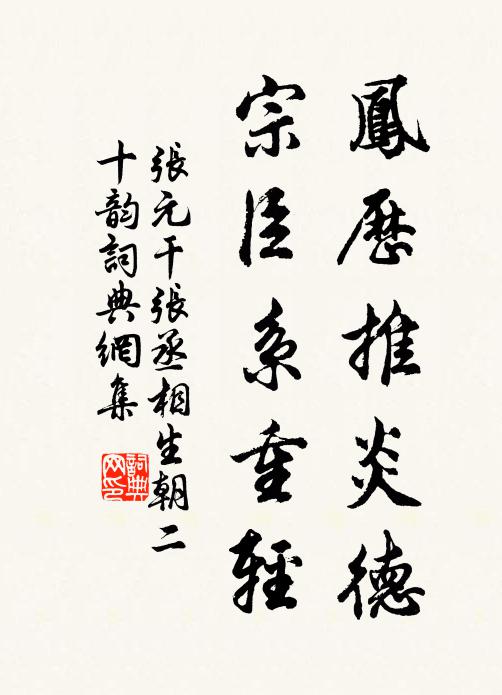 鳳歷推炎德
宗臣系重輕
張元干張丞相生朝二
十韵詞典網集
詞典
网印